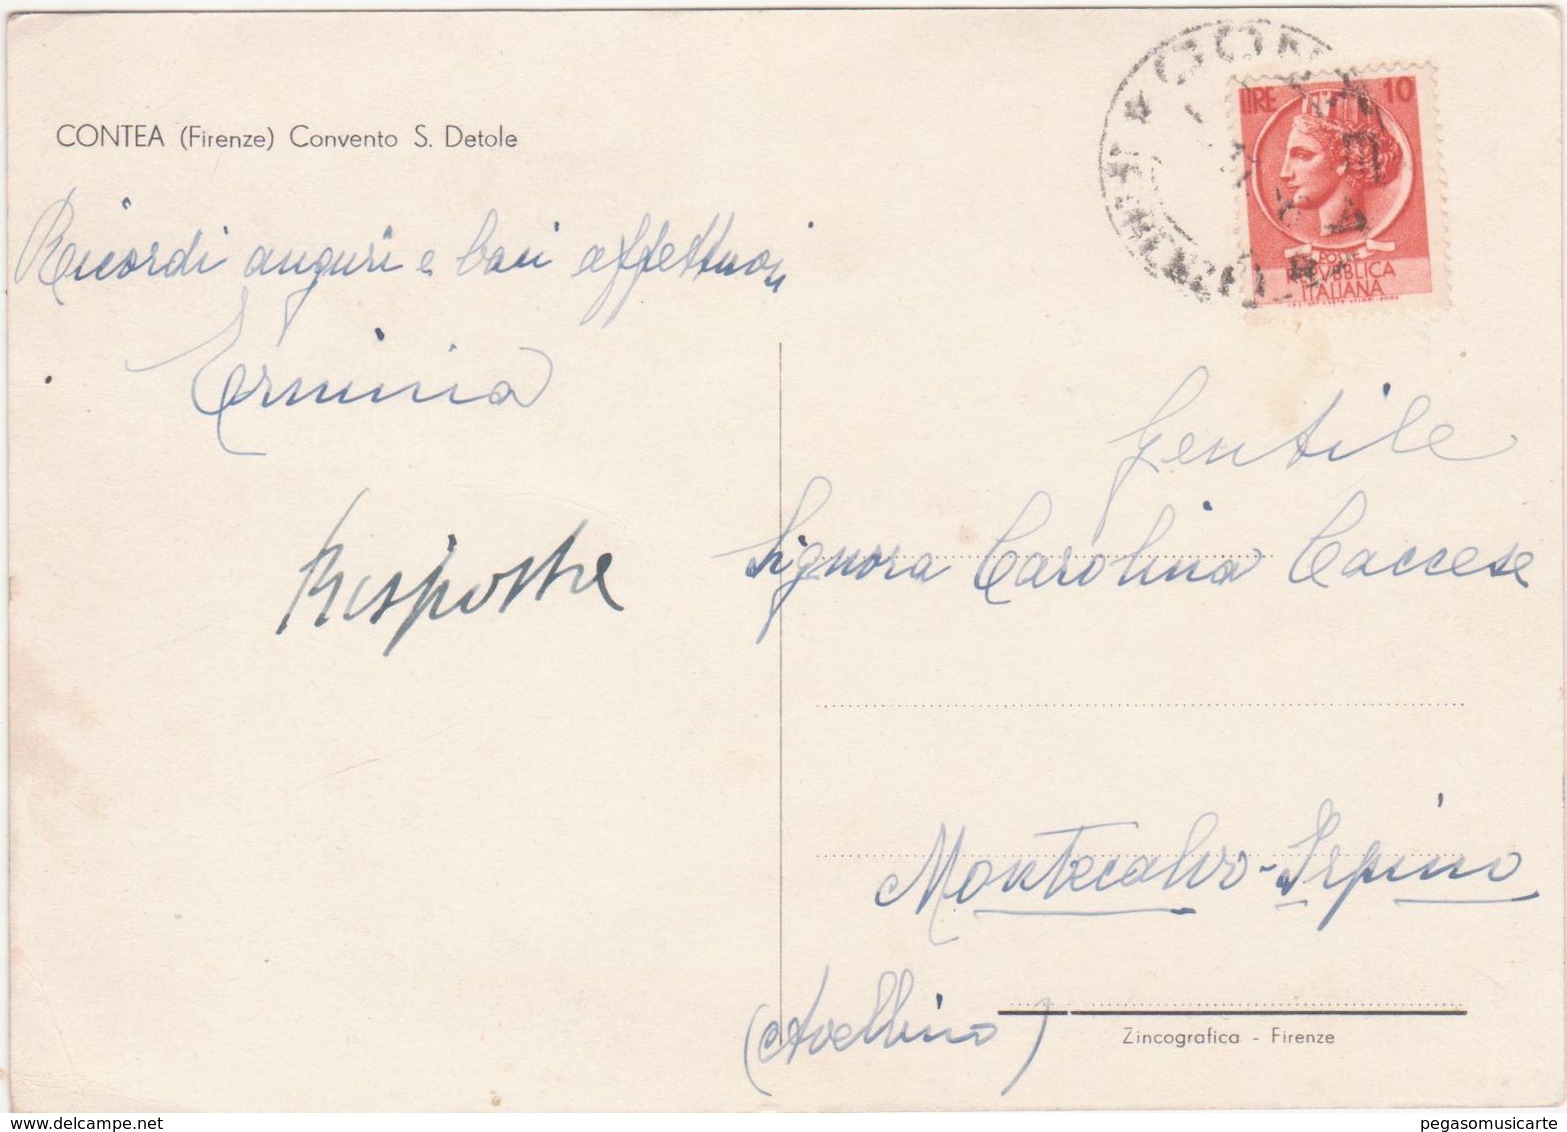 CONTEA (Firenze) Convento S. Detole
Ricordi auguri e baci affettuosi
Erminia
Risposta
LIRE 10
POSTE
REPVBBLICA
ITALIANA
Gentile
Signora Carolina Caccese
Montecalvo-Irpino
(Avellino)
Zincografica - Firenze
pegasomusicarte